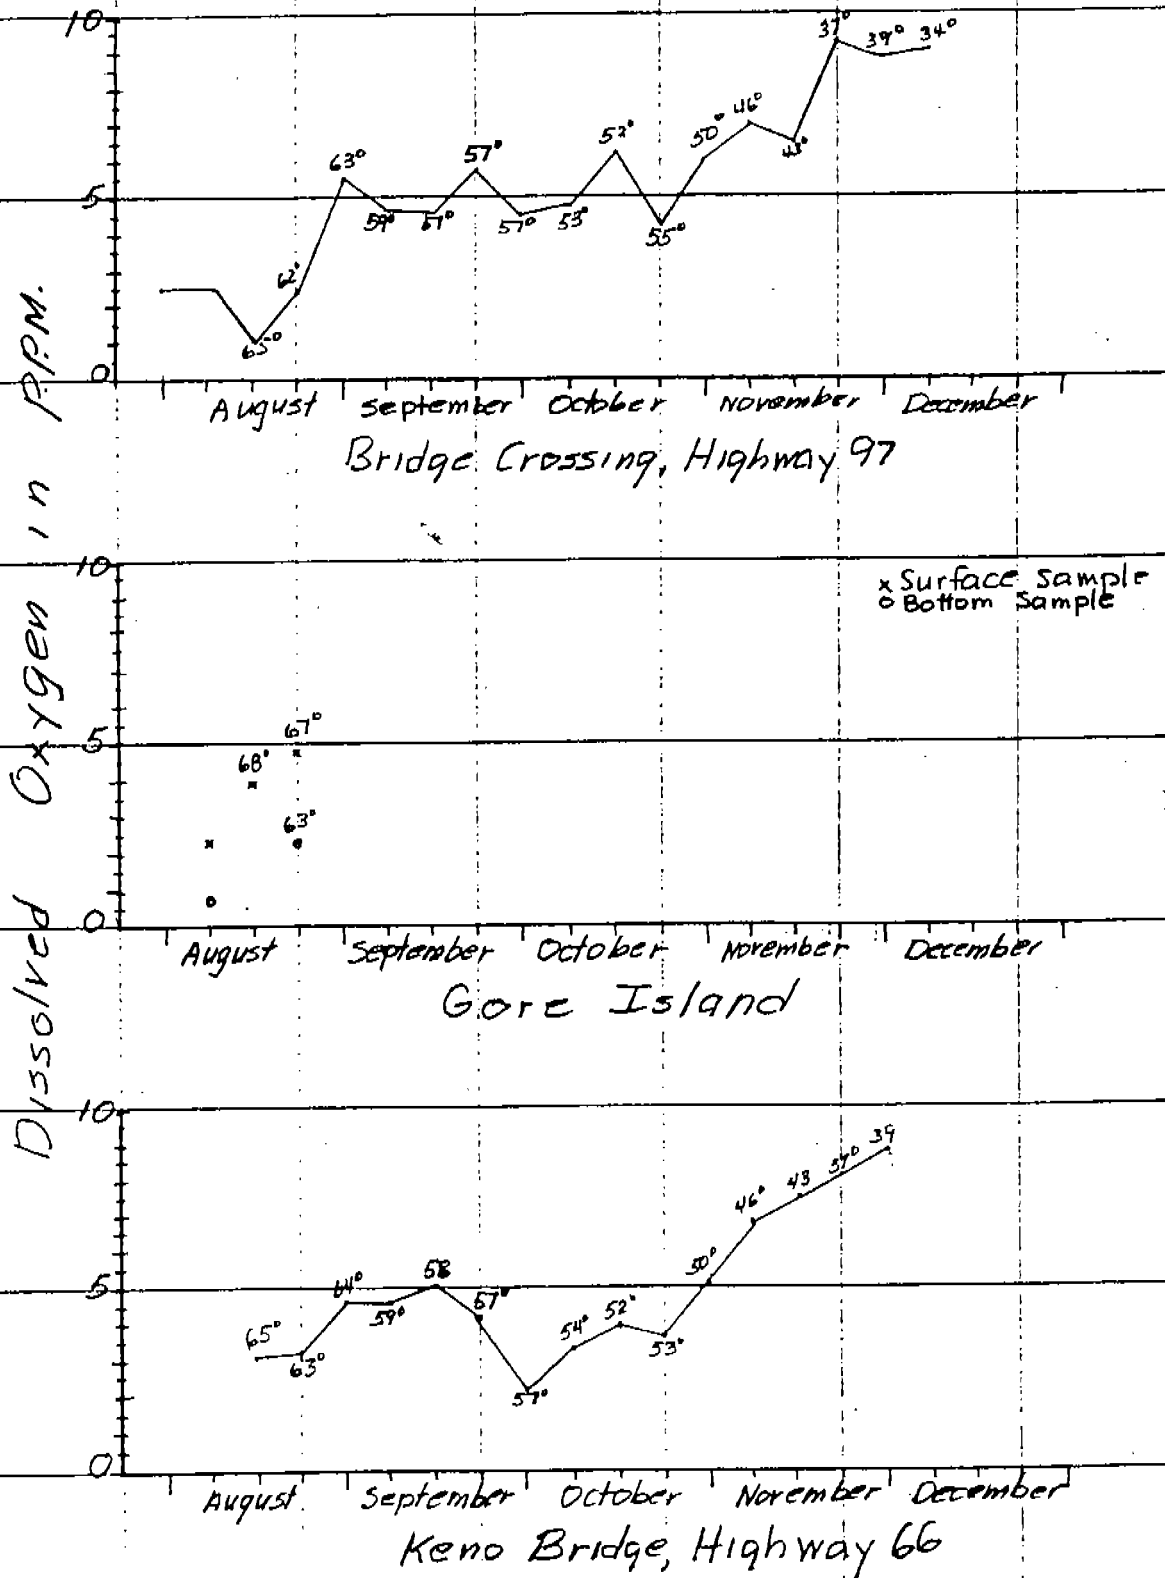 Dissolved Oxygen in P.P.M.
10
37°
39°
34°
46°
50°
52°
57°
63°
5
59°
57°
53°
55°
62°
65°
0
August September October November December
Bridge Crossing, Highway 97
10
x Surface Sample
o Bottom Sample
67°
5
68°
63°
0
August September October November December
Gore Island
10
39
37°
43
46°
58
50°
64°
5
57°
59°
52°
54°
65°
53°
63°
57°
0
August September October November December
Keno Bridge, Highway 66